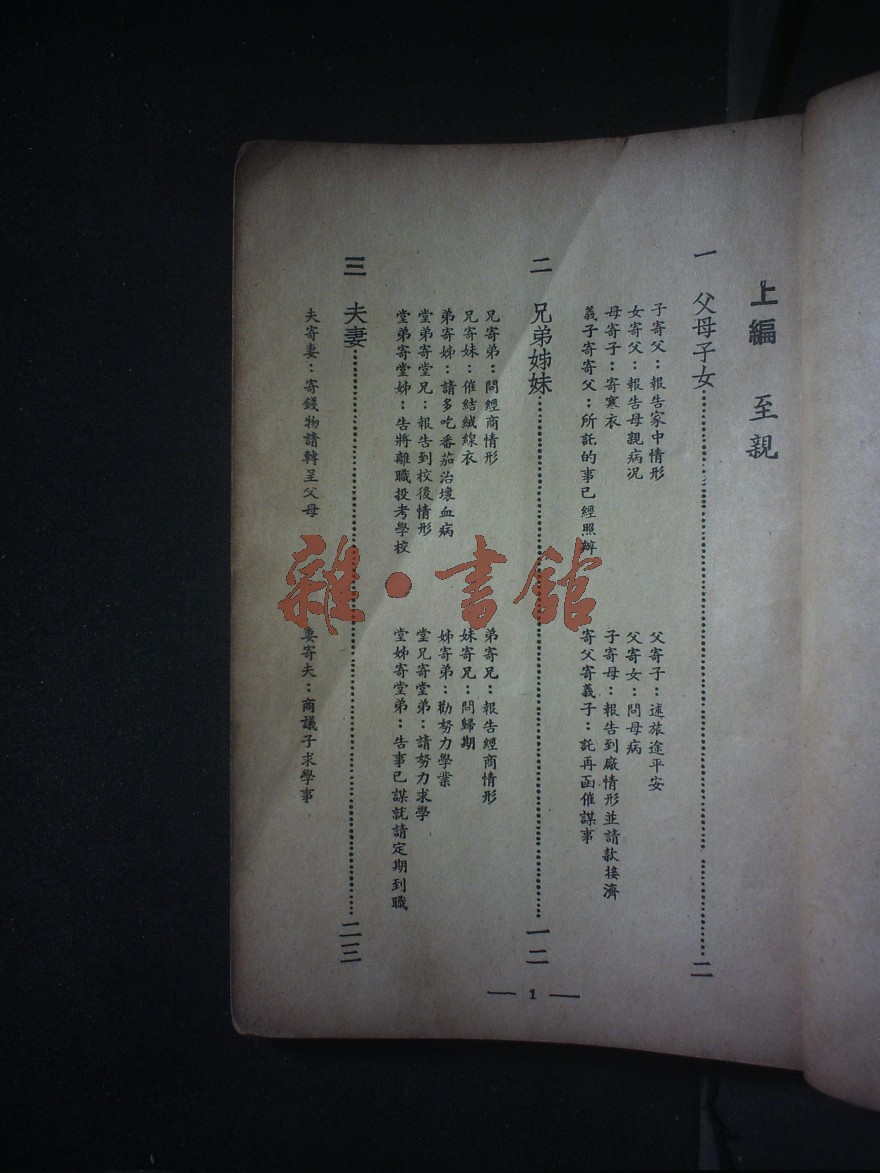 上編 至親
一 父母子女……二
子寄父：報告家中情形
父寄子：述旅途平安
女寄父：報告母親病況
父寄女：問母病
母寄子：寄寒衣
子寄母：報告到廠情形並請款接濟
義子寄寄父：所託的事已經照辦
寄父寄義子：託再函催謀事
二 兄弟姊妹……一二
兄寄弟：問經商情形
弟寄兄：報告經商情形
兄寄妹：催結絨線衣
妹寄兄：問歸期
弟寄姊：請多吃番茄治壞血病
姊寄弟：勸努力學業
堂弟寄堂兄：報告到校後情形
堂兄寄堂弟：請努力求學
堂弟寄堂姊：告將離職投考學校
堂姊寄堂弟：告事已謀就請定期到職
三 夫妻……二三
夫寄妻：寄錢物請轉呈父母
妻寄夫：商議子求學事
— 1 —
雜·書館